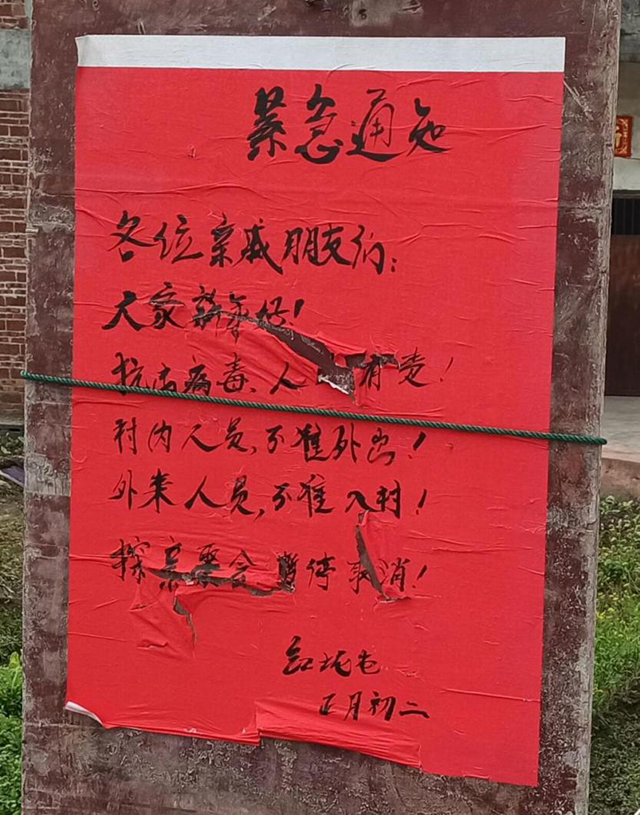 紧急通知
各位亲戚朋友们:
大家新年好!
抗击病毒、人有责!
村内人员,不准外出!
外来人员,不准入村!
探亲聚会暂停取消!
屯
正月初二